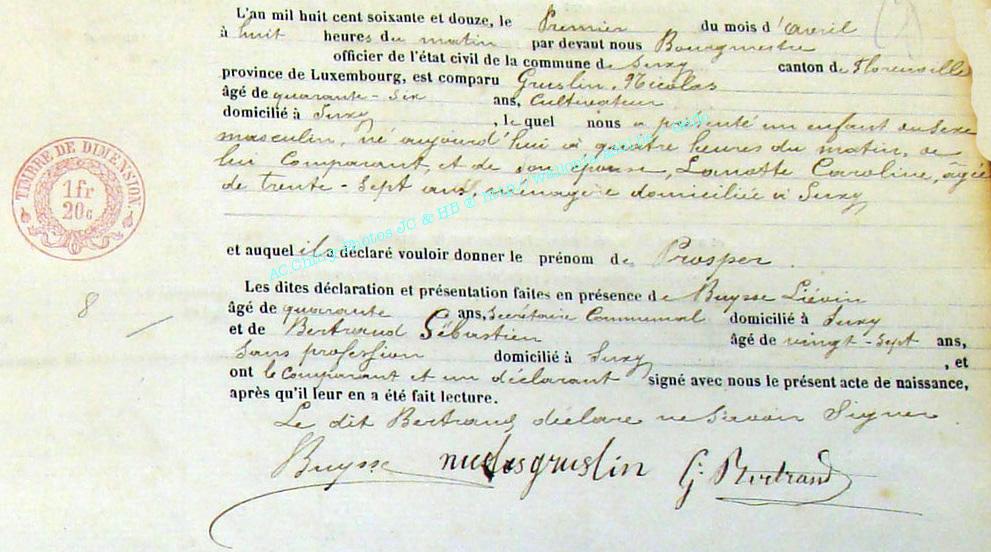 L'an mil huit cent soixante et douze, le Premier du mois d'avril
à huit heures du matin par devant nous Bourgmestre
officier de l'état civil de la commune de Suxy canton de Florenville
province de Luxembourg, est comparu Gruslin, Nicolas
âgé de quarante-six ans, Cultivateur
domicilié à Suxy, lequel nous a présenté un enfant du sexe
masculin, né aujourd'hui à quatre heures du matin, de
lui Comparant, et de son épouse, Lanotte Caroline, âgée
de trente-sept ans, ménagère domiciliée à Suxy
TIMBRE DE DIMENSION
1 fr
20 c
et auquel il a déclaré vouloir donner le prénom de Prosper.
Les dites déclaration et présentation faites en présence de Buysse Liévin
8
âgé de quarante ans, Secrétaire Communal domicilié à Suxy
et de Bertrand Sébastien âgé de vingt-sept ans,
Sans profession domicilié à Suxy, et
ont le Comparant et un déclarant signé avec nous le présent acte de naissance,
après qu'il leur en a été fait lecture.
Le dit Bertrand déclare ne Savoir Signer
Buysse gruslin G. Bertrand
AC Chiny Photos JC & HB ©